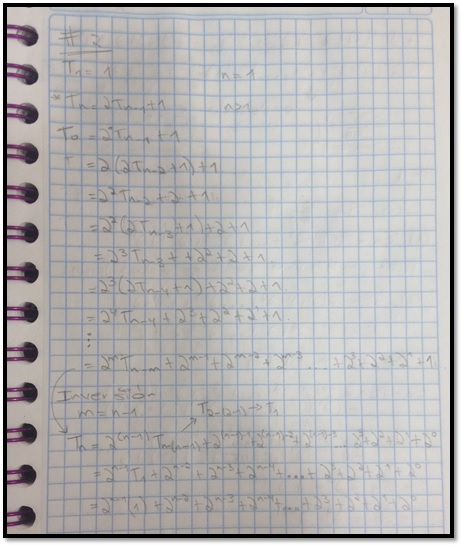 # 2
T₁ = 1 n = 1
* Tₙ = 2Tₙ₋₁ + 1 n>1
Tₙ = 2¹Tₙ₋₁ + 1
= 2(2Tₙ₋₂ + 1) + 1
= 2²Tₙ₋₂ + 2 + 1
= 2²(2Tₙ₋₃ + 1) + 2 + 1
= 2³Tₙ₋₃ + + 2² + 2 + 1
= 2³(2Tₙ₋₄ + 1) + 2² + 2 + 1
= 2⁴Tₙ₋₄ + 2³ + 2² + 2¹ + 1
⋮
= 2ᵐTₙ₋ₘ + 2ᵐ⁻¹ + 2ᵐ⁻² + 2ᵐ⁻³ .... + 2³ + 2² + 2¹ + 1
Inversión
m = n-1 Tₙ₋₍ₙ₋₁₎ → T₁
= 2ⁿ⁻¹T₁ + 2ⁿ⁻² + 2ⁿ⁻³ + 2ⁿ⁻⁴ + .... + 2³ + 2² + 2¹ + 2⁰
= 2ⁿ⁻¹(1) + 2ⁿ⁻² + 2ⁿ⁻³ + 2ⁿ⁻⁴ + .... + 2³ + 2² + 2¹ + 2⁰